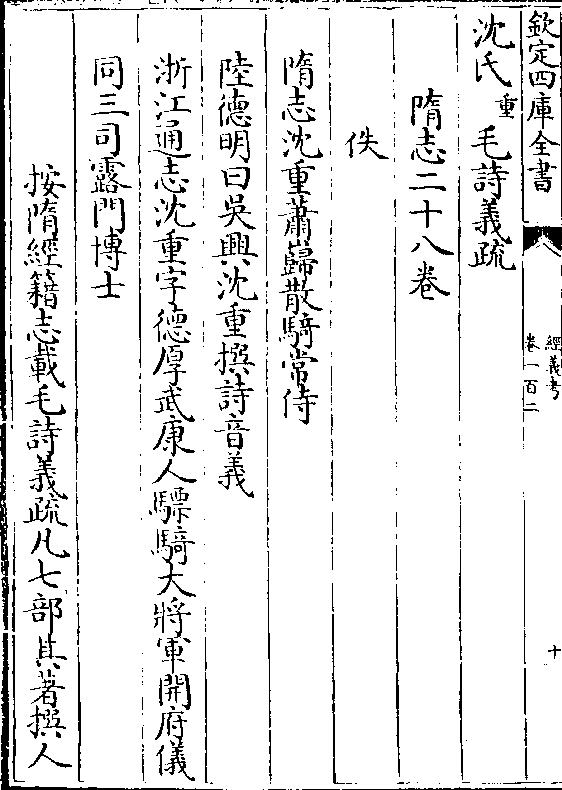 欽定四庫全書
經義考
卷一百二
十
沈氏重毛詩義疏
隋志二十八卷
佚
隋志沈重蕭巋散騎常侍
陸德明曰吳興沈重撰詩音義
浙江通志沈重字德厚武康人驃騎大將軍開府儀
同三司露門博士
按隋經籍志載毛詩義疏凡七部其著撰人